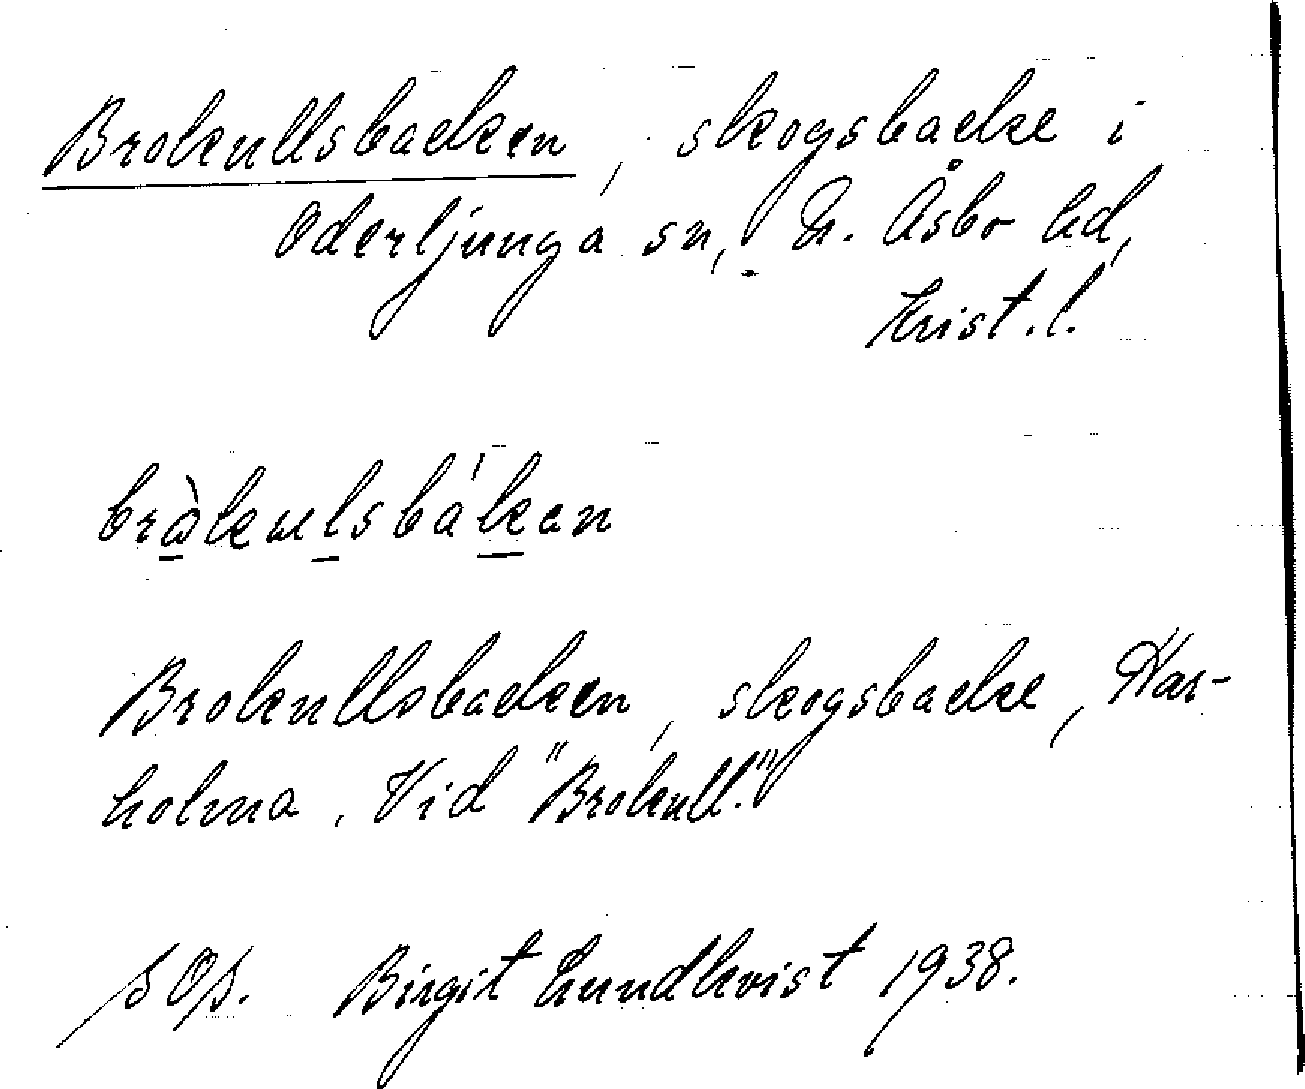 Brokullsbacken, skogsbacke i
Oderljunga sn, N. Åsbo hd,
Krist. l.
bràkulsbákan
Brokullsbacken, skogsbacke, Kar-
holma. Vid "Brokull."
SOS. Birgit Lundkvist 1938.